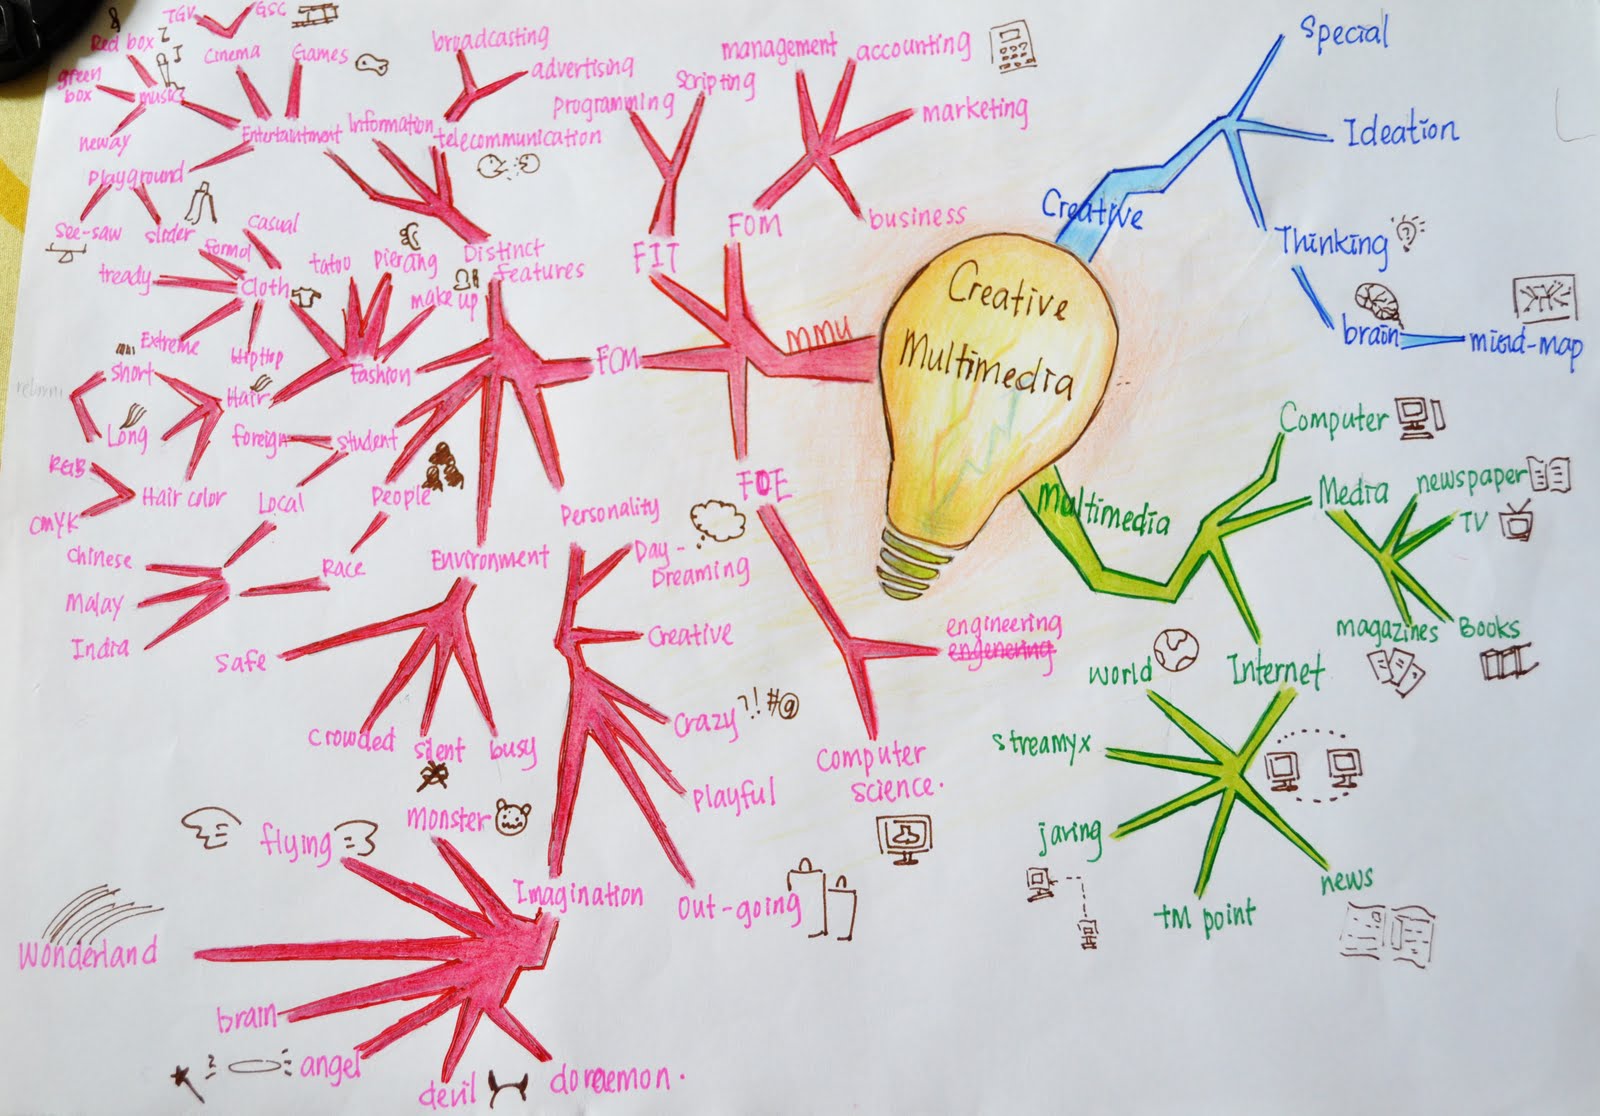 Creative
Multimedia
Creative
Special
Ideation
Thinking
brain
mind-map
Multimedia
Computer
Media
newspaper
TV
magazines
Books
Internet
world
streamyx
jaring
tM point
news
MMU
FOM
management
accounting
marketing
business
FIT
programming
Scripting
FOE
engineering
engenering
Computer
science.
FCM
Distinct
features
Information
broadcasting
advertising
telecommunication
Entertaintment
TGV
GSC
Cinema
Games
Red box
green
box
neway
musics
playground
see-saw
slider
fashion
tatoo
pierang
make up
Cloth
Casual
formal
tready
Extreme
hiphop
Hair
short
Long
Hair color
RGB
CMYK
student
foreign
Local
People
Race
Chinese
Malay
India
Environment
Safe
crowded
silent
busy
Personality
Day-
Dreaming
Creative
Crazy ?!#@
playful
Out-going
Imagination
monster
flying
Wonderland
brain
angel
devil
doraemon.